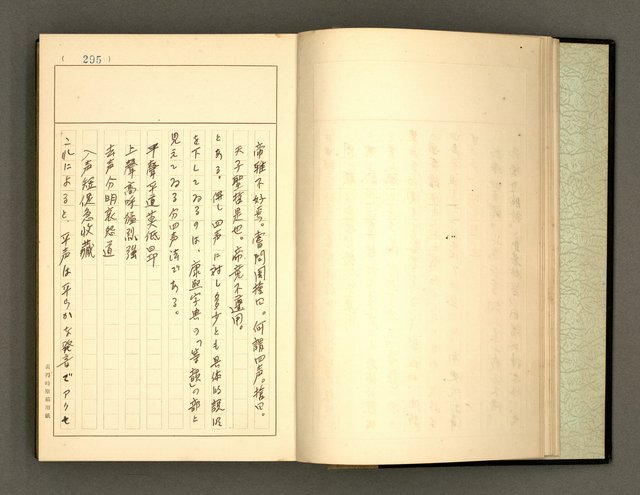 (295)
帝雅不好焉。嘗問周捨曰。何謂四声。捨曰。
天子聖哲是也。帝竟不遵用。
とある。併し四声に対し多少とも具体的説明
を下してゐるのは、康熙字典の「等韻」の部に
見えてゐる分四声法である。
平聲平道莫低昂
上聲高呼猛烈強
去声分明哀遠道
入声短促急收藏
これによると、平声は平らかな発音でアクセ